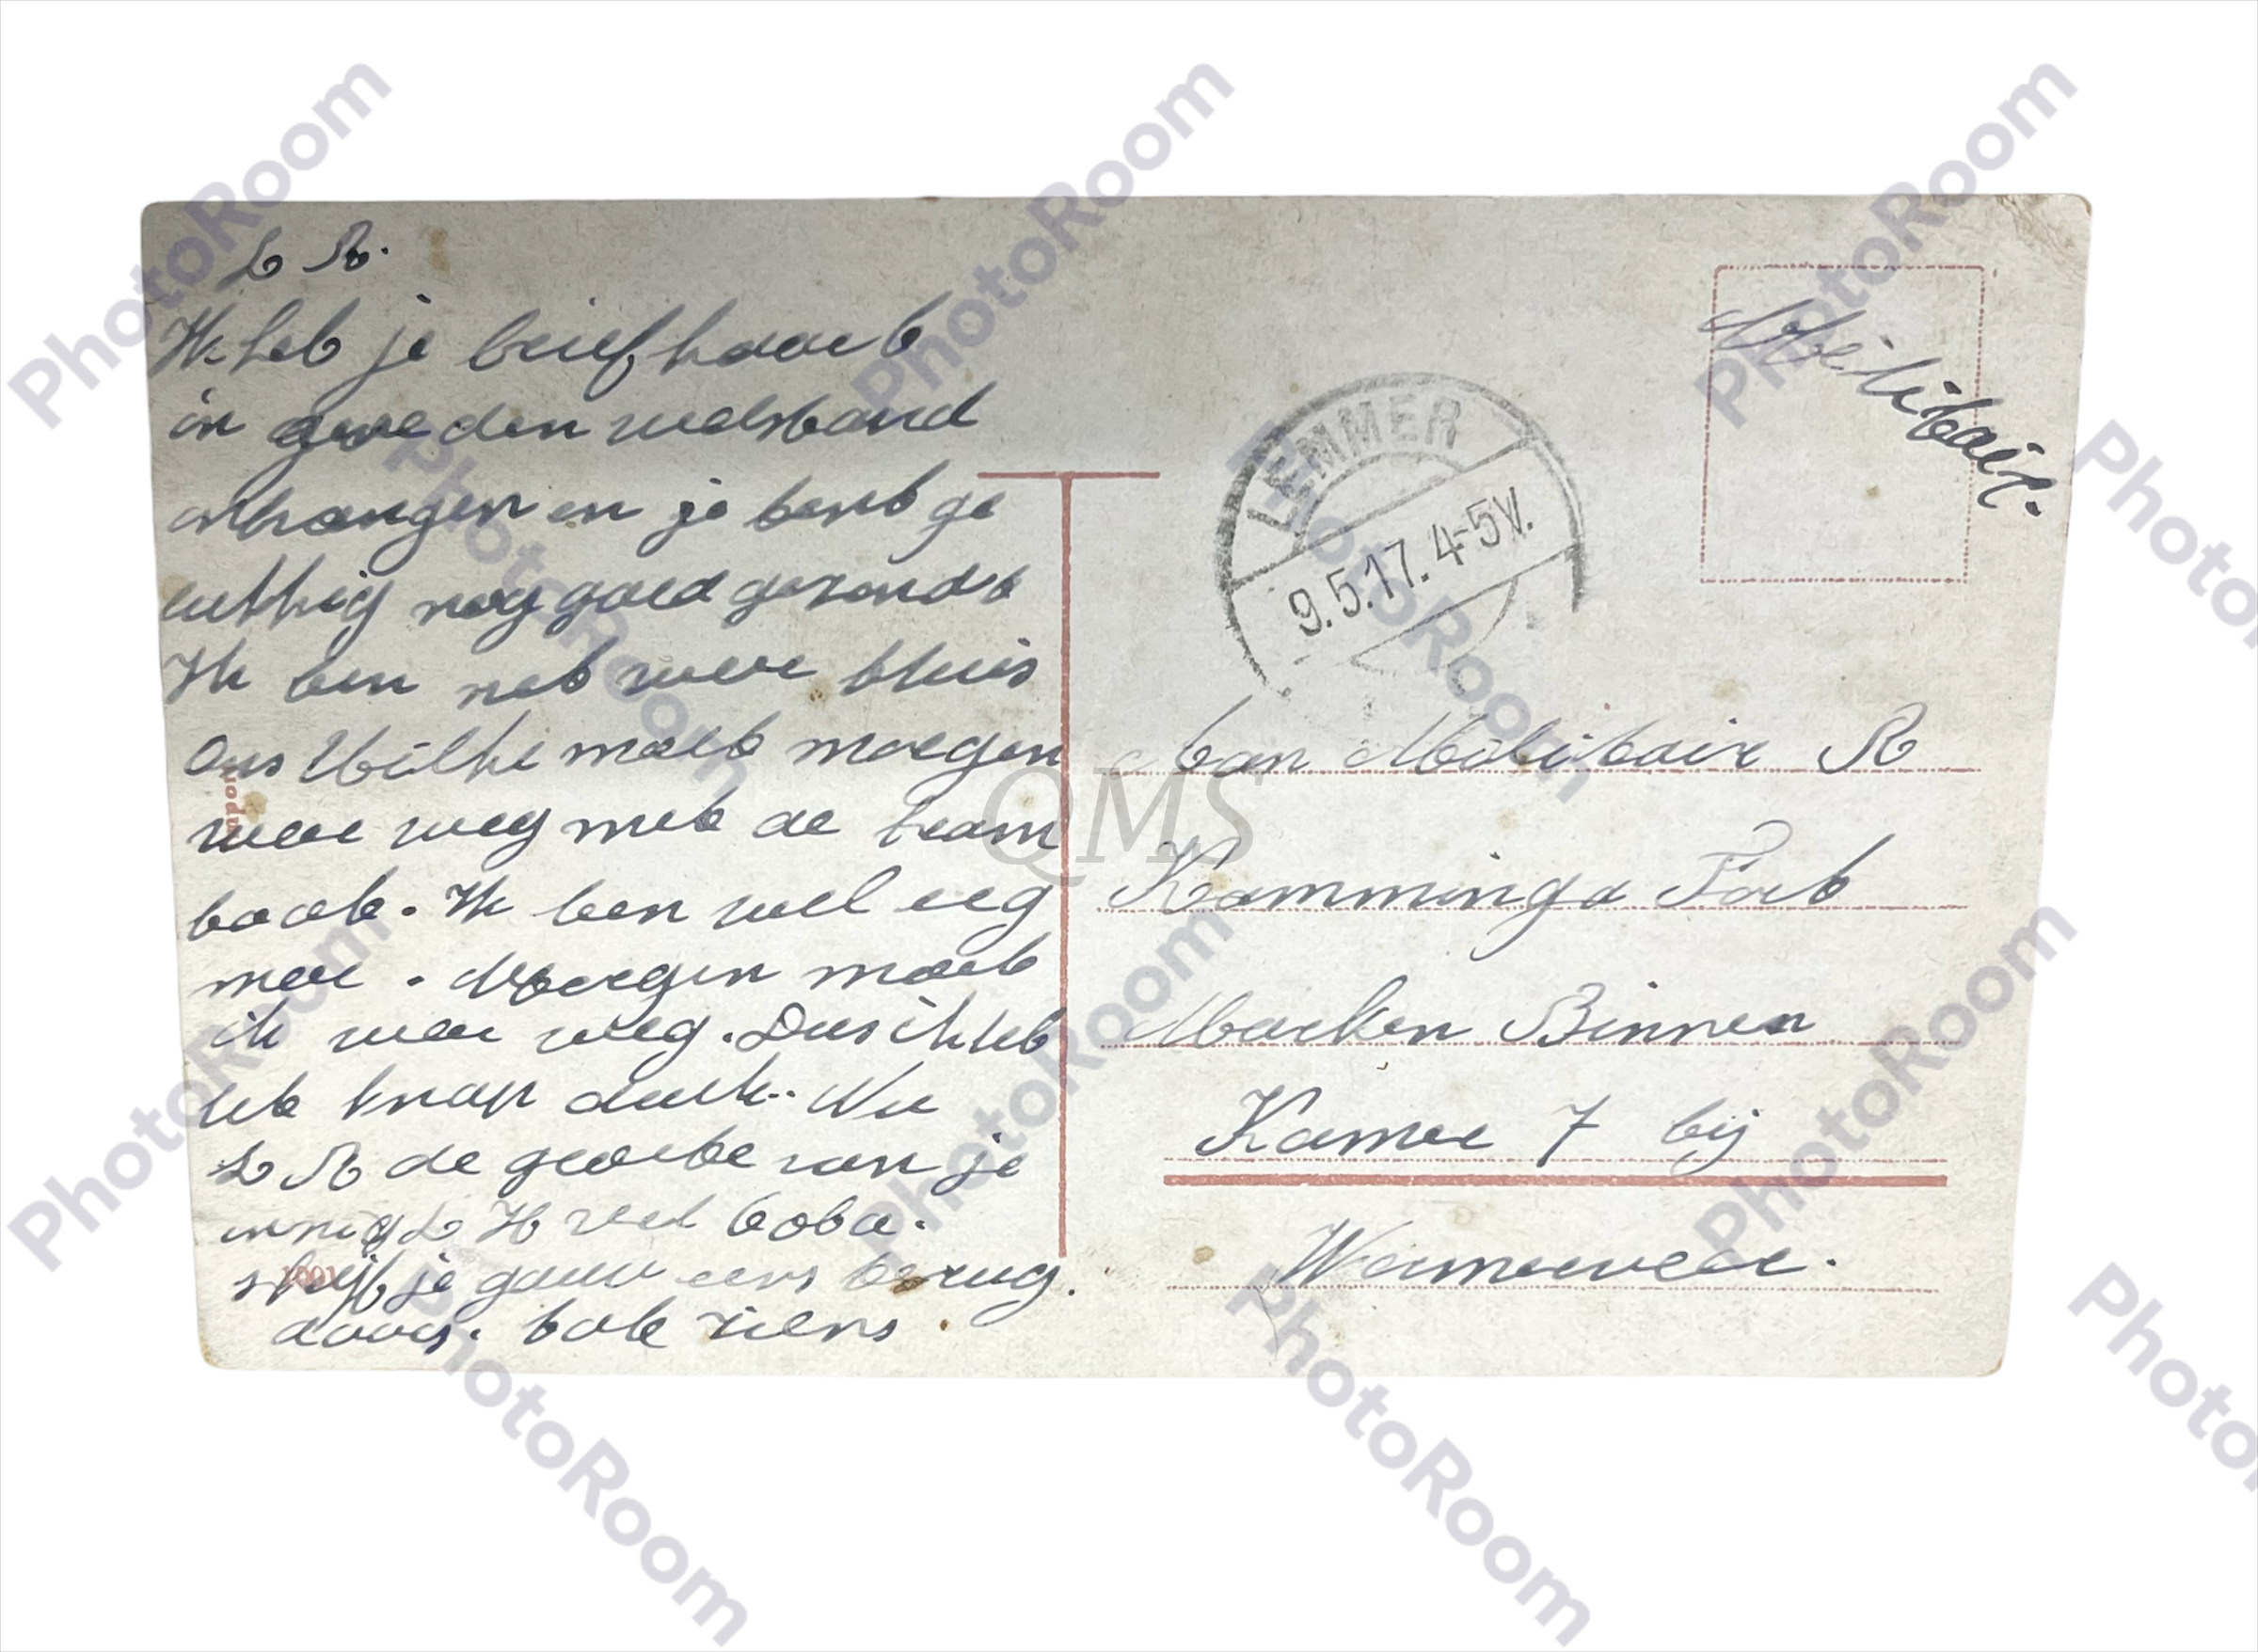 L R.
Ik heb je brief kaart
in goeden welstand
onthangen en je bent ge
lukkig nog goed gezondt
Ik ben net weer thuis
Ons Wilhi moet morgen
weer weg met de tram
boot. Ik ben wel erg
moe. Morgen moet
ik weer weg. Dus ik heb
het knap druk. Nu
L R de groete van je
innig L H veel
schrijf je gauw eens terug.
daag. tot ziens.
LEMMER
9.5.17. 4-5V.
Militair.
Aan Militair R
Kamminga Fort
Marken Binnen
Kamer 7 bij
Wormerveer.
1001
QMS
PhotoRoom